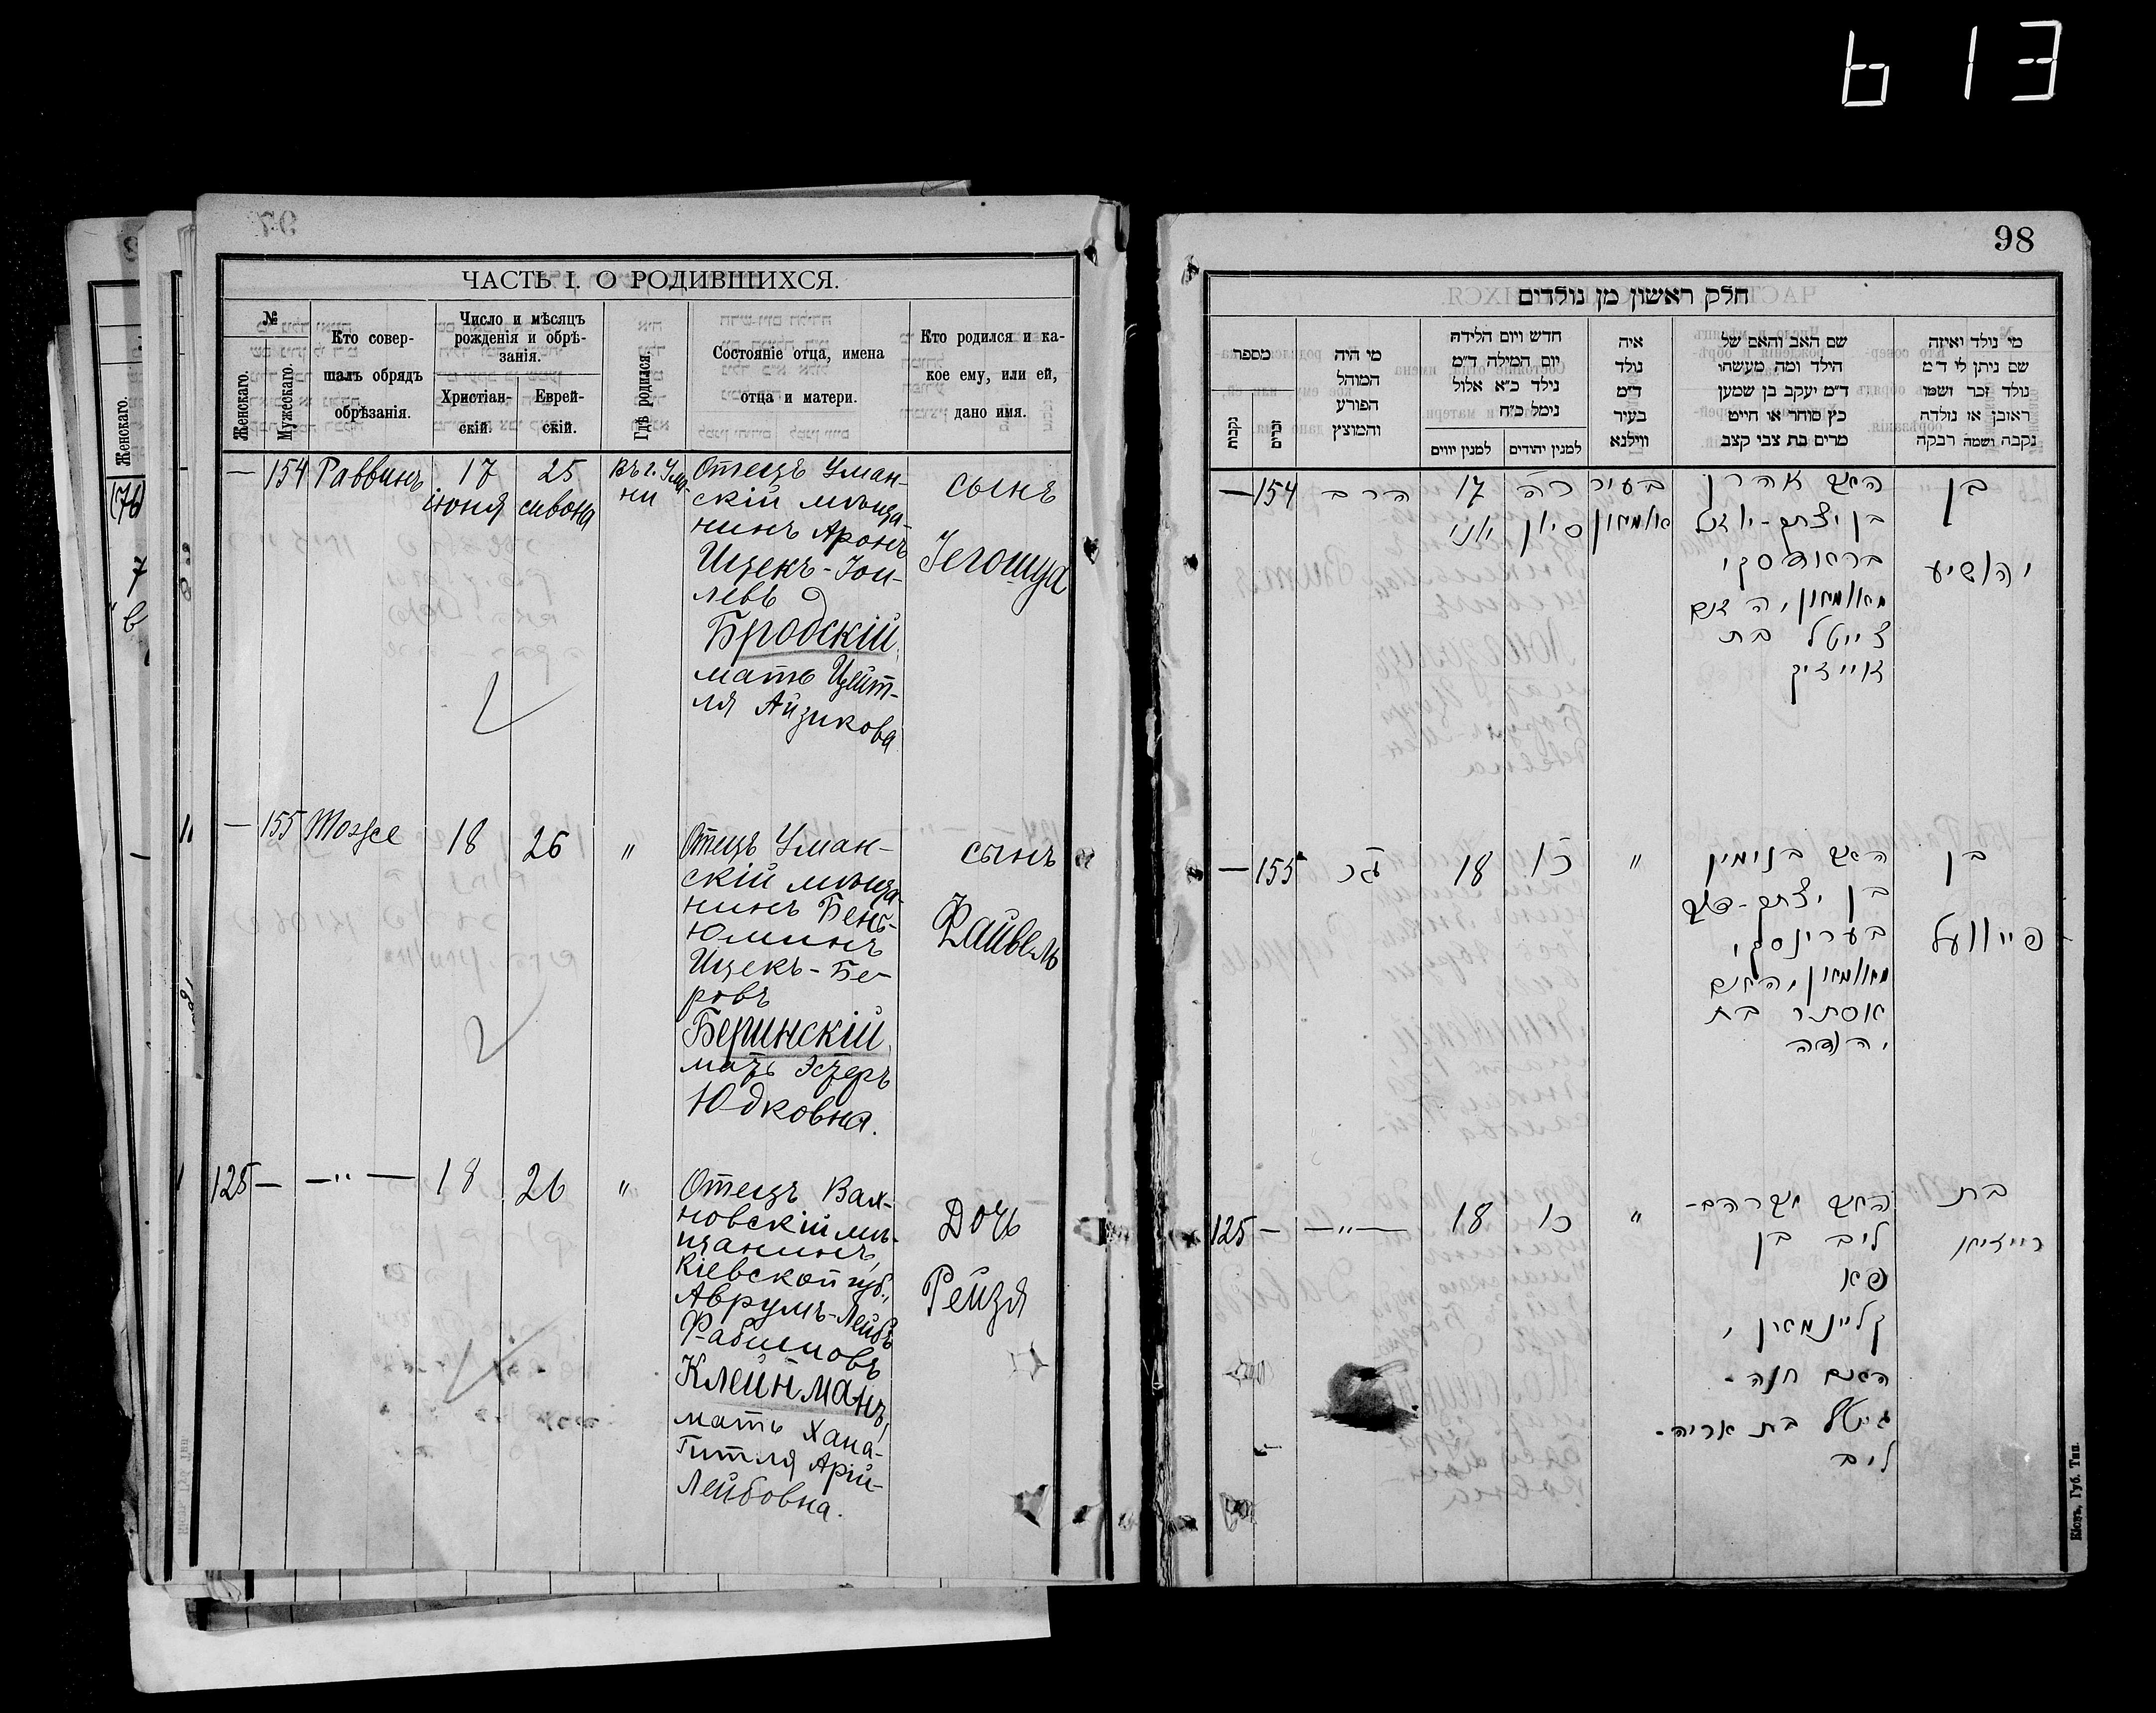 613
97
ЧАСТЬ I. О РОДИВШИХСЯ.
№
Женскаго.
Мужескаго.
Кто совер-
шалъ обрядъ
обрѣзанія.
Число и мѣсяцъ
рожденія и обрѣ-
занія.
Христіан-
скій.
Еврей-
скій.
Гдѣ родился.
Состояніе отца, имена
отца и матери.
Кто родился и ка-
кое ему, или ей,
дано имя.
Женскаго.
— 154 Раввинъ 17 іюня 25 сивона въ г. Ума-
ни
Отецъ Уман-
скій мѣща-
нинъ Аронъ
Ицекъ-Іои-
левъ
Бродскій,
мать Цейт-
ля Айзикова
сынъ
Іегошуа
— 155 Мошке 18 26 "
Отецъ Уман-
скій мѣща-
нинъ Бень-
Юминъ
Ицекъ-Бе-
ровъ
Беринскій,
мать Эстеръ
Юдковна.
сынъ
Файвель
125 — —"— 18 26 "
Отецъ Вах-
новскій мѣ-
щанинъ,
Кіевской губ.,
Аврумъ-Лейбъ
Фабишовъ
Клейнманъ,
мать Хана-
Гитля Арій-
Лейбовна.
Дочь
Рейзя
98
חלק ראשון מן נולדים
מספר
נקבות
זכרים
מי היה
המוהל
הפורע
והמוצץ
חדש ויום הלידה
יום המילה ד"מ
נילד כ"א אלול
נימל כ"ח
למנין יווים
למנין יהודים
איה
נולד
ד"מ
בעיר
ווילנא
שם האב והאם של
הילד ומה מעשהו
ד"מ יעקב בן שמען
כץ סוחר או חייט
מרים בת צבי קצב
מי נולד ואיזה
שם ניתן לו ד"מ
נולד זכר ושמו
ראובן או נולדה
נקבה ושמה רבקה
— 154 הרב 17 יוני כה סיון בעיר אומאן
האב אהרן
בן יצחק-יואל
בראדסקי
מאומאן, האם
צייטל בת
אייזיק
בן
יהושיע
— 155 18 כו "
האב בנימין
בן יצחק-
בערינסקי,
מאומאן, האם
אסתר בת
יהודה
בן
פייוועל
125 — —"— 18 כו "
האב אברהם-
ליב בן
קליינמאן,
האם חנה-
גיטל בת אריה-
ליב
בת
רייזיא
Кіевъ, Губ. Тип.